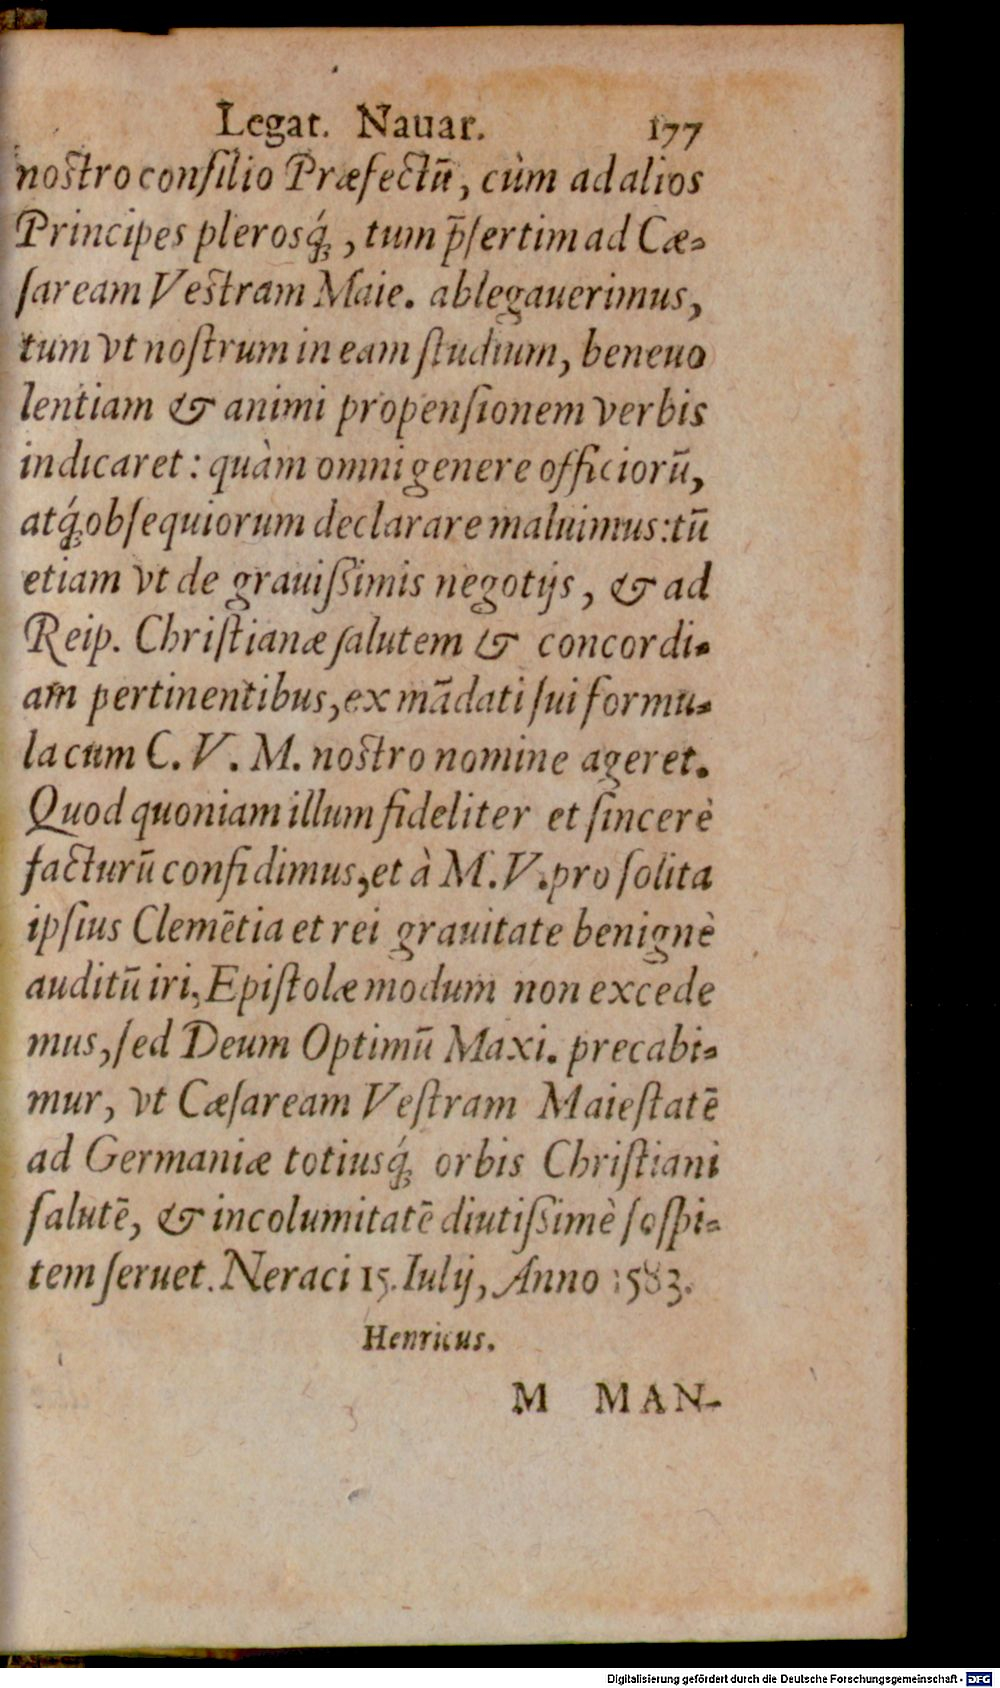 Legat. Nauar. 177
nostro consilio Præfectū, cùm ad alios
Principes plerosq́;, tum p̄sertim ad Cæ-
saream Vestram Maie. ablegauerimus,
tum vt nostrum in eam studium, beneuo
lentiam & animi propensionem verbis
indicaret: quàm omni genere officiorū,
atq́; obsequiorum declarare maluimus: tū
etiam vt de grauissimis negotijs, & ad
Reip. Christianæ salutem & concordi-
am pertinentibus, ex mādati sui formu-
la cum C. V. M. nostro nomine ageret.
Quod quoniam illum fideliter et sincerè
facturū confidimus, et à M. V. pro solita
ipsius Clemētia et rei grauitate benignè
auditū iri, Epistolæ modum non excede
mus, sed Deum Optimū Maxi. precabi-
mur, vt Cæsaream Vestram Maiestatē
ad Germaniæ totiusq́; orbis Christiani
salutē, & incolumitatē diutissimè sospi-
tem seruet. Neraci 15. Iulij, Anno 1583.
Henricus.
M MAN-
Digitalisierung gefördert durch die Deutsche Forschungsgemeinschaft - DFG